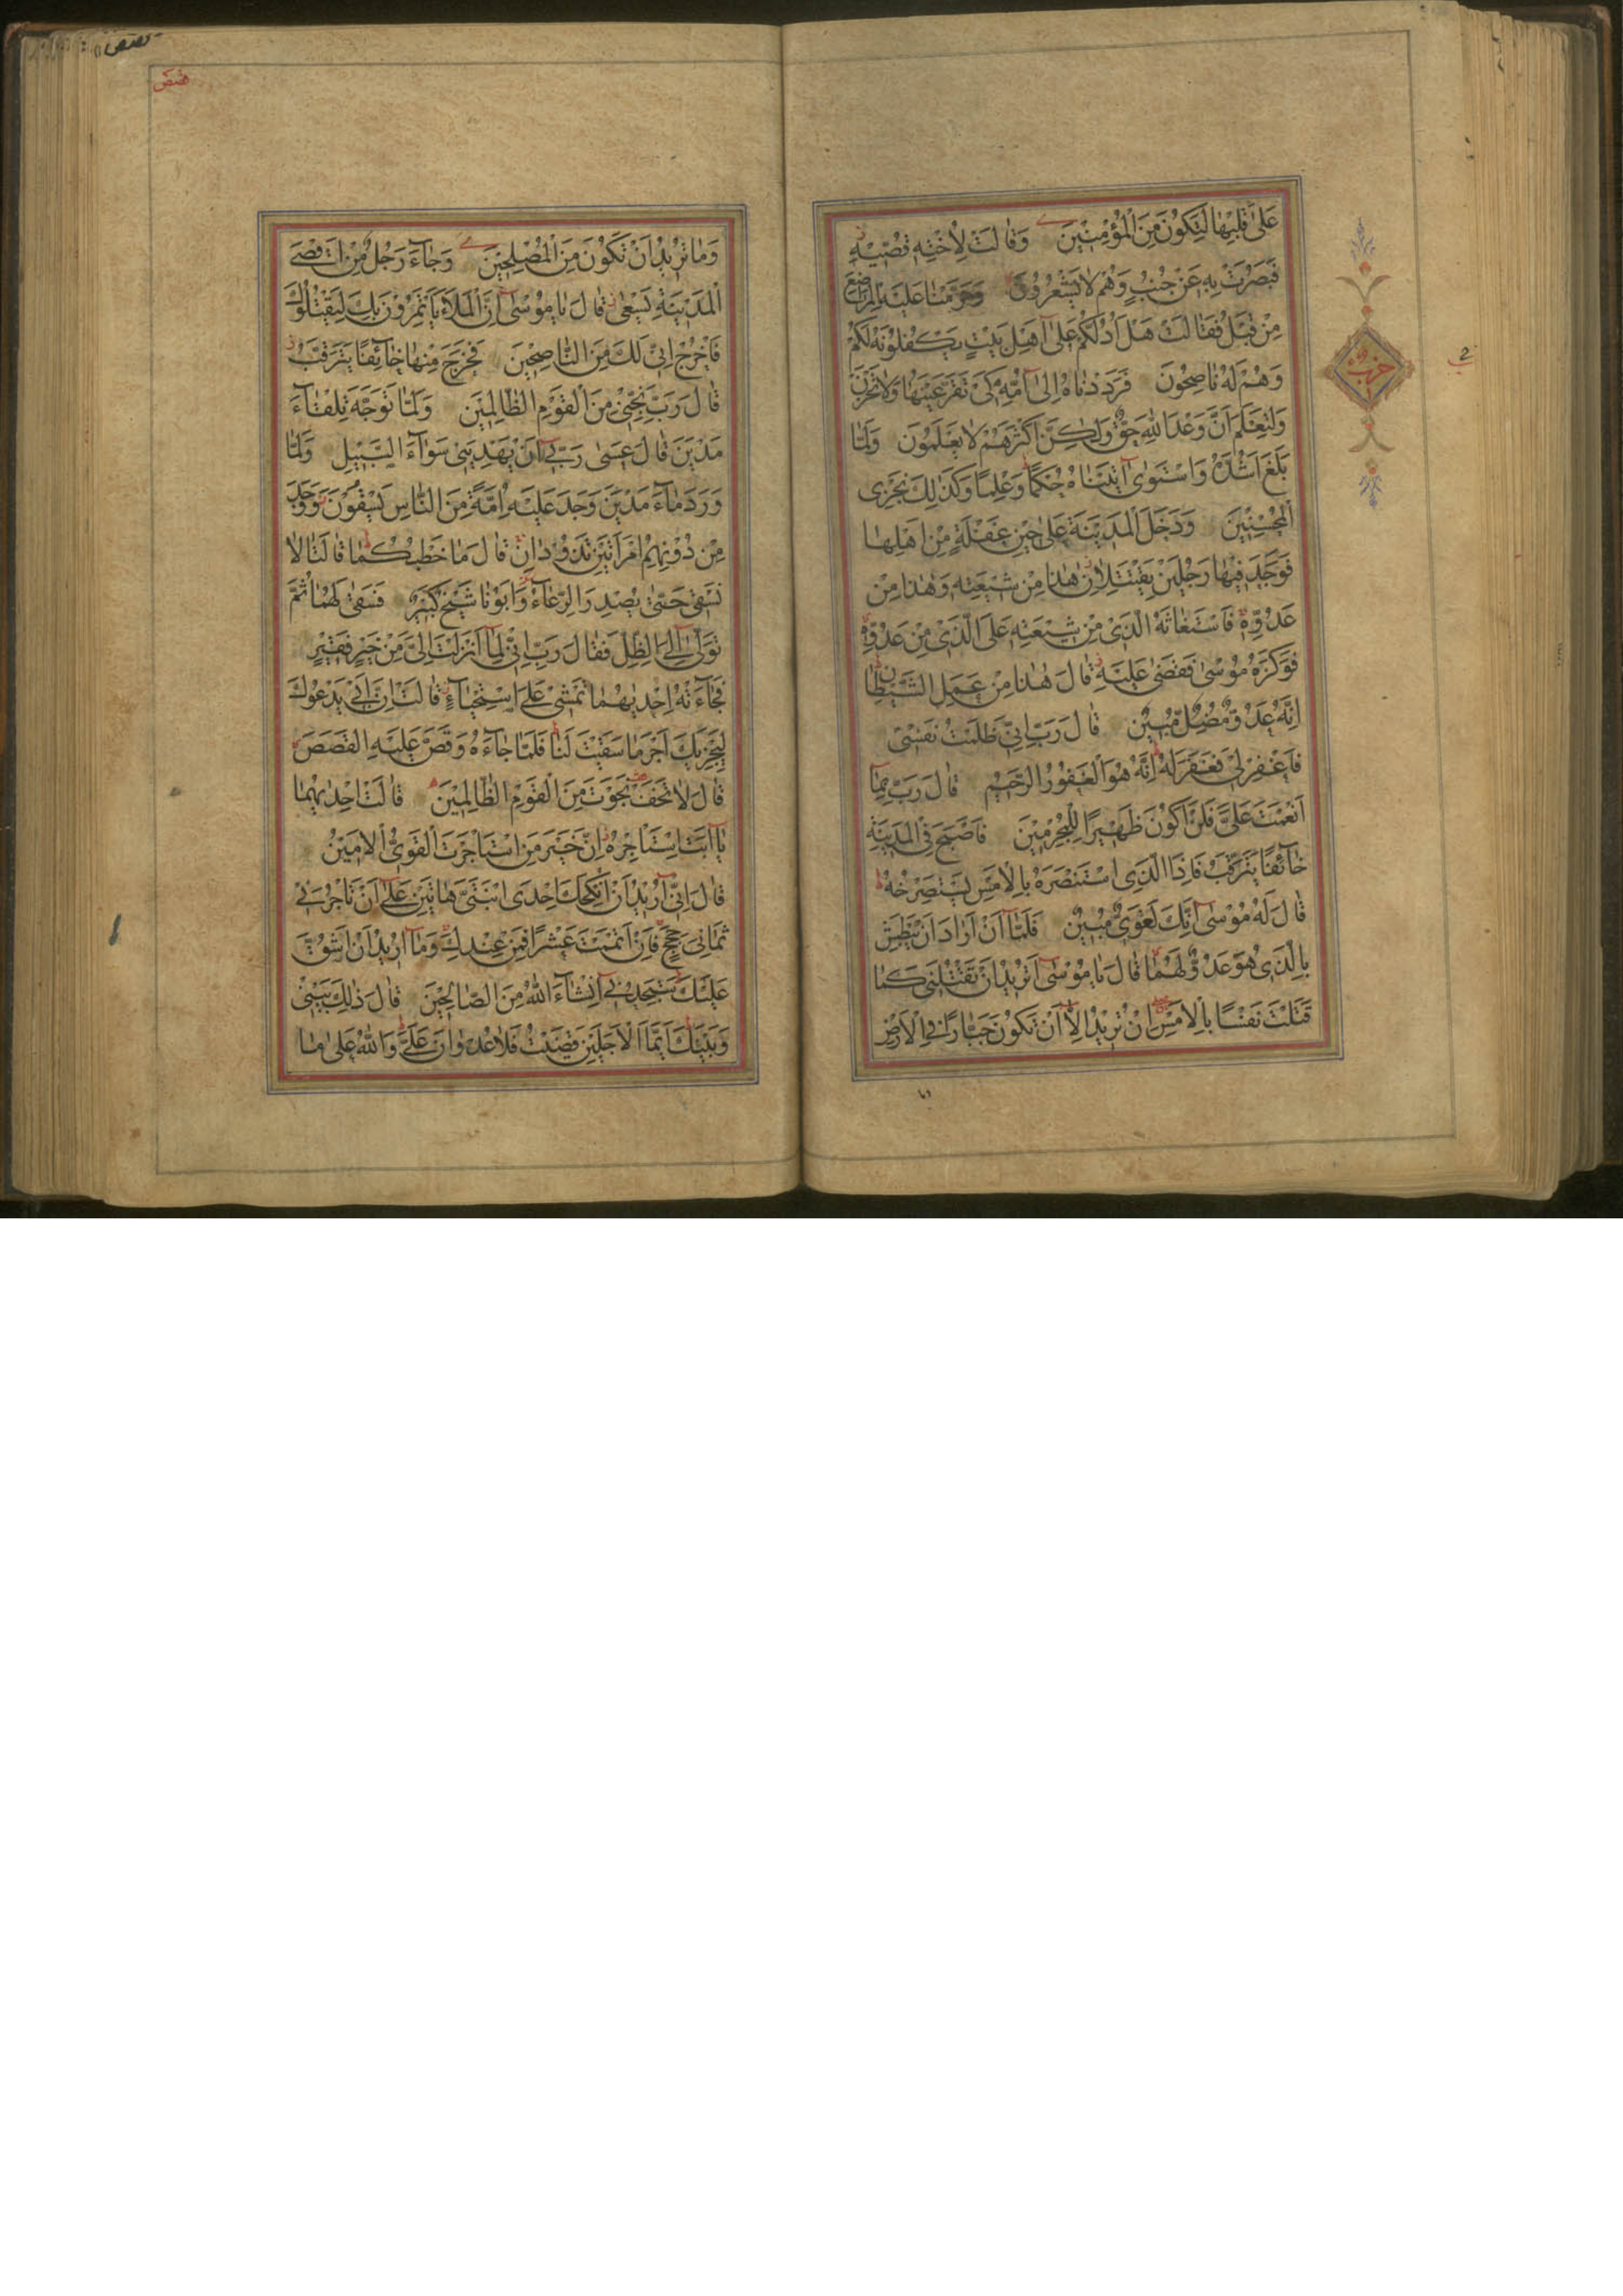 عَلىٰ قَلْبِهٰا لِتَكُونَ مِنَ الْمُؤْمِنِينَ وَقٰالَتْ لِاُخْتِهِ قُصّيهِ
فَبَصُرَتْ بِهِ عَنْ جُنُبٍ وَهُمْ لٰا يَشْعُرُونَ وَحَرَّمْنٰا عَلَيْهِ الْمَرٰاضِعَ
مِنْ قَبْلُ فَقٰالَتْ هَلْ اَدُلُّكُمْ عَلىٰ اَهْلِ بَيْتٍ يَكْفُلُونَهُ لَكُمْ
وَهُمْ لَهُ نٰاصِحُونَ فَرَدَدْنٰاهُ اِلىٰ اُمِّهِ كَىْ تَقَرَّ عَيْنُهٰا وَلٰا تَحْزَنَ
وَلِتَعْلَمَ اَنَّ وَعْدَ اللّٰهِ حَقٌّ وَلٰكِنَّ اَكْثَرَهُمْ لٰا يَعْلَمُونَ وَلَمّٰا
بَلَغَ اَشُدَّهُ وَاسْتَوىٰ اٰتَيْنٰاهُ حُكْمًا وَعِلْمًا وَكَذٰلِكَ نَجْزِى
الْمُحْسِنِينَ وَدَخَلَ الْمَدِينَةَ عَلىٰ حِينِ غَفْلَةٍ مِنْ اَهْلِهٰا
فَوَجَدَ فِيهٰا رَجُلَيْنِ يَقْتَتِلٰانِ هٰذٰا مِنْ شِيعَتِهِ وَهٰذٰا مِنْ
عَدُوِّهِ فَاسْتَغٰاثَهُ الَّذِى مِنْ شِيعَتِهِ عَلَى الَّذِى مِنْ عَدُوِّهِ
فَوَكَزَهُ مُوسىٰ فَقَضىٰ عَلَيْهِ قٰالَ هٰذٰا مِنْ عَمَلِ الشَّيْطٰانِ
اِنَّهُ عَدُوٌّ مُضِلٌّ مُبِينٌ قٰالَ رَبِّ اِنِّى ظَلَمْتُ نَفْسِى
فَاغْفِرْ لِى فَغَفَرَ لَهُ اِنَّهُ هُوَ الْغَفُورُ الرَّحِيمُ قٰالَ رَبِّ بِمٰا
اَنْعَمْتَ عَلَىَّ فَلَنْ اَكُونَ ظَهِيرًا لِلْمُجْرِمِينَ فَاَصْبَحَ فِى الْمَدِينَةِ
خٰائِفًا يَتَرَقَّبُ فَاِذَا الَّذِى اسْتَنْصَرَهُ بِالْاَمْسِ يَسْتَصْرِخُهُ
قٰالَ لَهُ مُوسىٰ اِنَّكَ لَغَوِىٌّ مُبِينٌ فَلَمّٰا اَنْ اَرٰادَ اَنْ يَبْطِشَ
بِالَّذِى هُوَ عَدُوٌّ لَهُمٰا قٰالَ يٰا مُوسىٰ اَتُرِيدُ اَنْ تَقْتُلَنِى كَمٰا
قَتَلْتَ نَفْسًا بِالْاَمْسِ اِنْ تُرِيدُ اِلّٰا اَنْ تَكُونَ جَبّٰارًا فِى الْاَرْضِ
حزب
قصص
قصص
وَمٰا تُرِيدُ اَنْ تَكُونَ مِنَ الْمُصْلِحِينَ وَجٰاءَ رَجُلٌ مِنْ اَقْصَى
الْمَدِينَةِ يَسْعىٰ قٰالَ يٰا مُوسىٰ اِنَّ الْمَلَاَ يَاْتَمِرُونَ بِكَ لِيَقْتُلُوكَ
فَاخْرُجْ اِنِّى لَكَ مِنَ النّٰاصِحِينَ فَخَرَجَ مِنْهٰا خٰائِفًا يَتَرَقَّبُ
قٰالَ رَبِّ نَجِّنِى مِنَ الْقَوْمِ الظّٰالِمِينَ وَلَمّٰا تَوَجَّهَ تِلْقٰاءَ
مَدْيَنَ قٰالَ عَسىٰ رَبِّى اَنْ يَهْدِيَنِى سَوٰاءَ السَّبِيلِ وَلَمّٰا
وَرَدَ مٰاءَ مَدْيَنَ وَجَدَ عَلَيْهِ اُمَّةً مِنَ النّٰاسِ يَسْقُونَ وَوَجَدَ
مِنْ دُونِهِمُ امْرَاَتَيْنِ تَذُودٰانِ قٰالَ مٰا خَطْبُكُمٰا قٰالَتٰا لٰا
نَسْقِى حَتّىٰ يُصْدِرَ الرِّعٰاءُ وَاَبُونٰا شَيْخٌ كَبِيرٌ فَسَقىٰ لَهُمٰا ثُمَّ
تَوَلّىٰ اِلَى الظِّلِّ فَقٰالَ رَبِّ اِنِّى لِمٰا اَنْزَلْتَ اِلَىَّ مِنْ خَيْرٍ فَقِيرٌ
فَجٰاءَتْهُ اِحْدٰيهُمٰا تَمْشِى عَلَى اسْتِحْيٰاءٍ قٰالَتْ اِنَّ اَبِى يَدْعُوكَ
لِيَجْزِيَكَ اَجْرَ مٰا سَقَيْتَ لَنٰا فَلَمّٰا جٰاءَهُ وَقَصَّ عَلَيْهِ الْقَصَصَ
قٰالَ لٰا تَخَفْ نَجَوْتَ مِنَ الْقَوْمِ الظّٰالِمِينَ قٰالَتْ اِحْدٰيهُمٰا
يٰا اَبَتِ اسْتَاْجِرْهُ اِنَّ خَيْرَ مَنِ اسْتَاْجَرْتَ الْقَوِىُّ الْاَمِينُ
قٰالَ اِنِّى اُرِيدُ اَنْ اُنْكِحَكَ اِحْدَى ابْنَتَىَّ هٰاتَيْنِ عَلىٰ اَنْ تَاْجُرَنِى
ثَمٰانِىَ حِجَجٍ فَاِنْ اَتْمَمْتَ عَشْرًا فَمِنْ عِنْدِكَ وَمٰا اُرِيدُ اَنْ اَشُقَّ
عَلَيْكَ سَتَجِدُنِى اِنْشٰاءَ اللّٰهُ مِنَ الصّٰالِحِينَ قٰالَ ذٰلِكَ بَيْنِى
وَبَيْنَكَ اَيَّمَا الْاَجَلَيْنِ قَضَيْتُ فَلٰا عُدْوٰانَ عَلَىَّ وَاللّٰهُ عَلىٰ مٰا